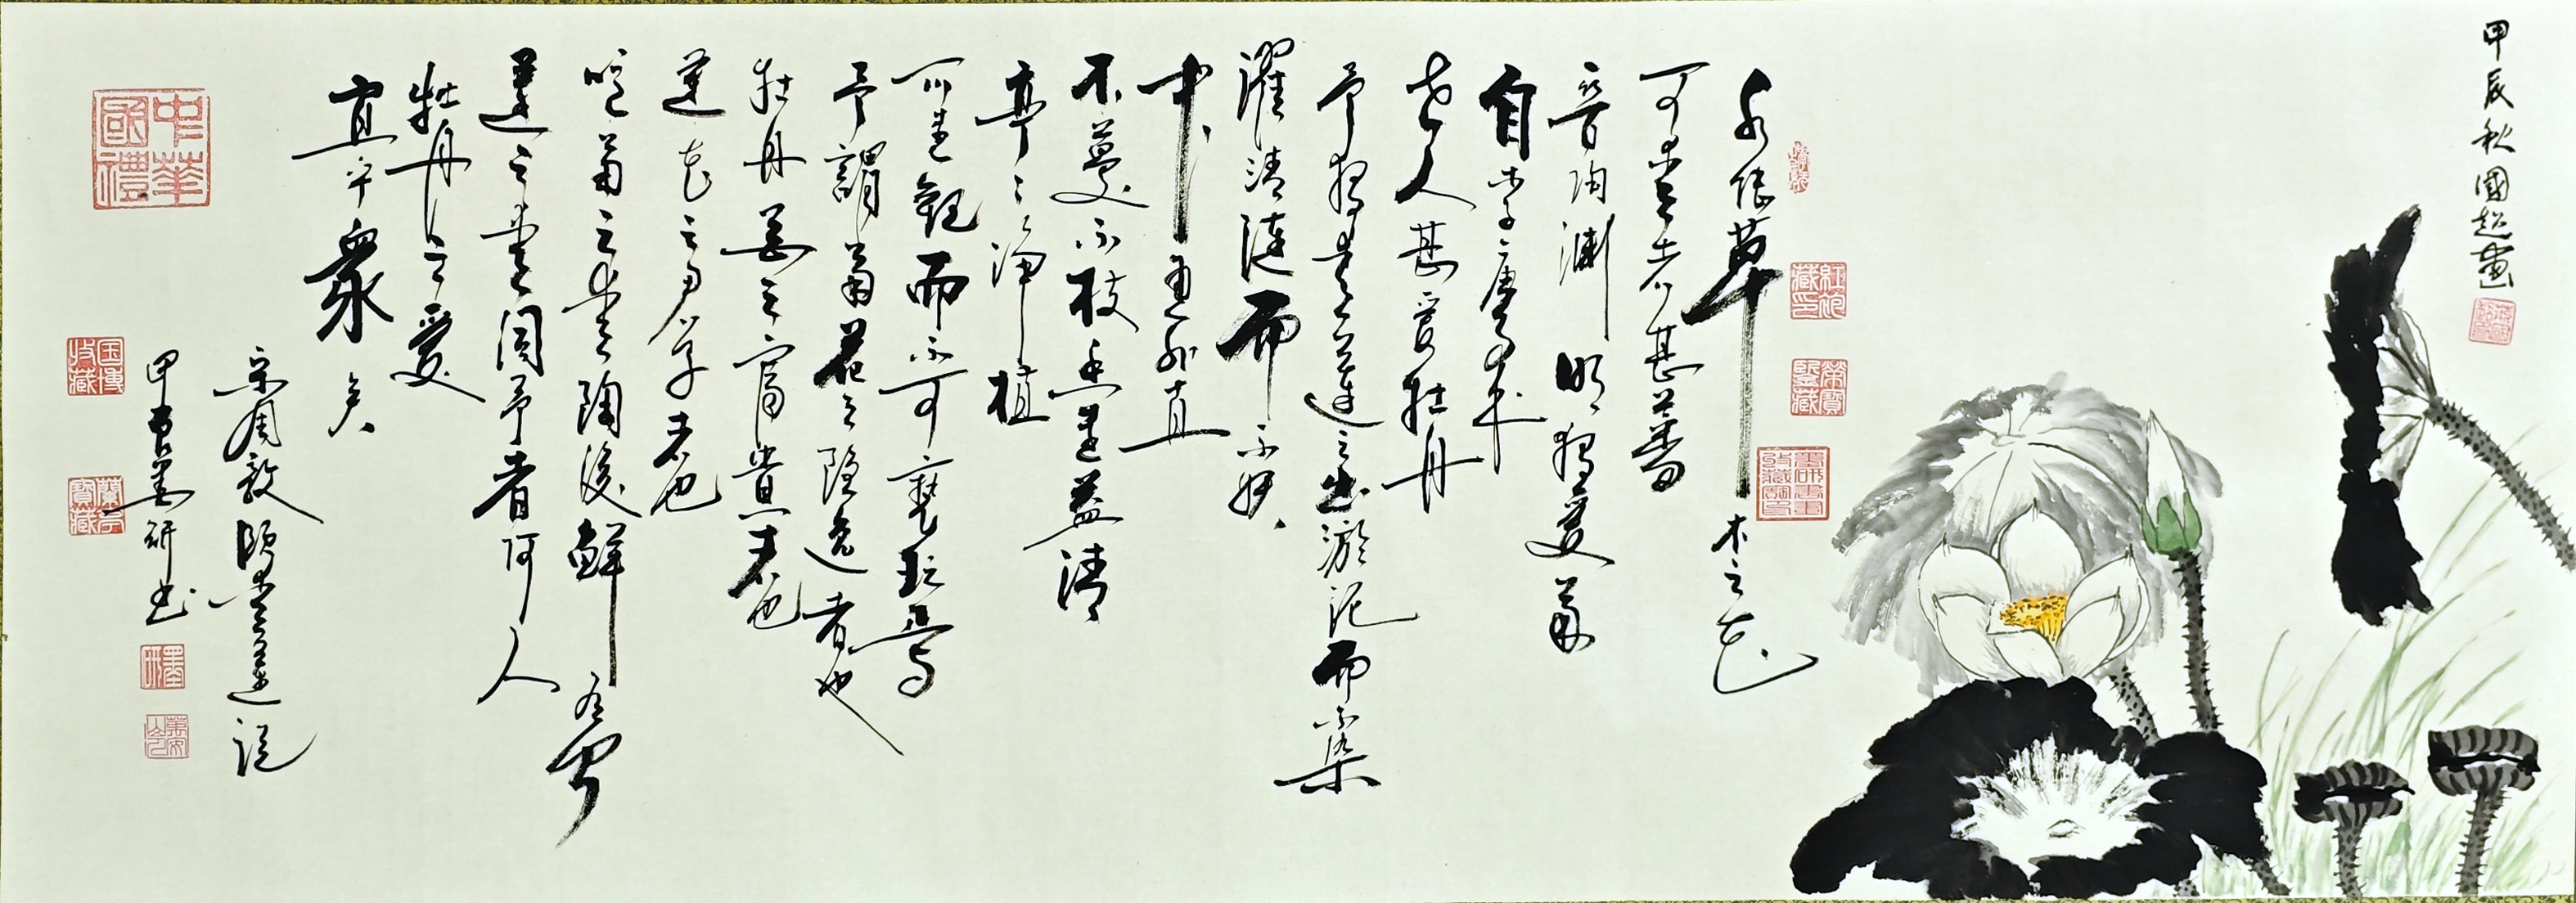 甲辰秋國超畫
水陸草木之花
可愛者甚蕃
晉陶淵明獨愛菊
自李唐來
世人甚愛牡丹
予獨愛蓮之出淤泥而不染
濯清漣而不妖
中通外直
不蔓不枝香遠益清
亭〻淨植
可遠觀而不可褻玩焉
予謂菊花之隱逸者也
牡丹花之富貴者也
蓮花之君子者也
噫菊之愛陶後鮮有聞
蓮之愛同予者何人
牡丹之愛
宜乎衆矣
宋周敦頤愛蓮說
甲辰墨研书
榮寶鑒藏
中華國禮
国博收藏
蘭亭寶藏
墨研